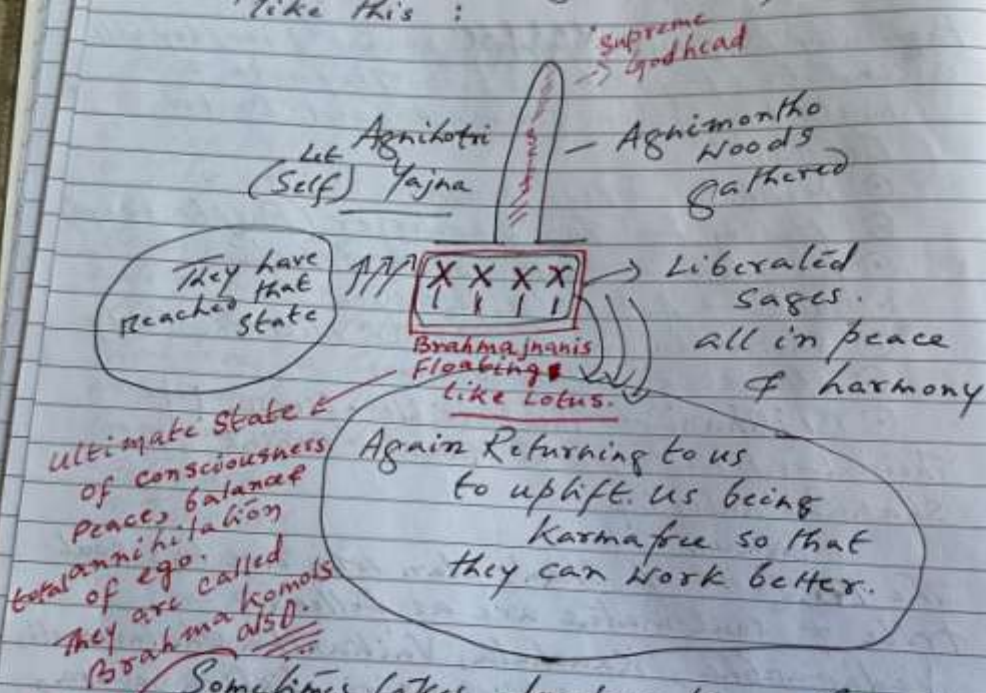 like this :
Supreme
Godhead
Agnihotri
Let
(Self) Yajna
Agnimontho
Woods
gathered
They have
Reached that
State
X X X X
Liberated
Sages.
all in peace
& harmony
Brahmajnanis
Floating
like Lotus.
Ultimate State
of consciousness
Peace, balance &
total annihilation
of ego.
They are called
Brahmakomols
also.
Again Returning to us
to uplift us being
Karma free so that
they can work better.
Sometimes takes